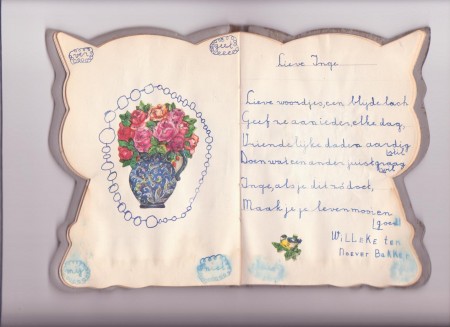 ver
geet
Lieve Inge
Lieve woordjes, een blijde lach
Geef ze aan ieder, elke dag.
Vriendelijke daden aardig
stil
Doen wat een ander juist graag
wil
Inge, als je dit zó doet,
Maak je je leven mooi en
goed
Willeke ten
Noever Bakker
mij
niet